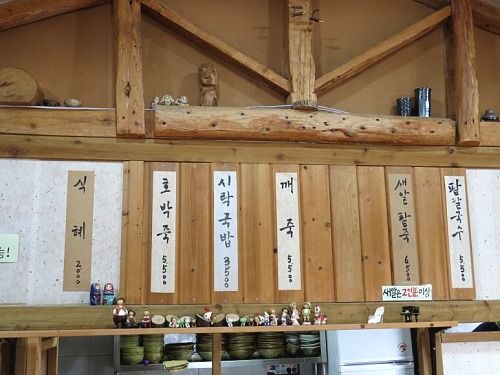 식혜 2000
호박죽 5500
시락국밥 3500
깨죽 5500
새알팥죽 6500
팥칼국수 5500
능!
새알은 2인분이상